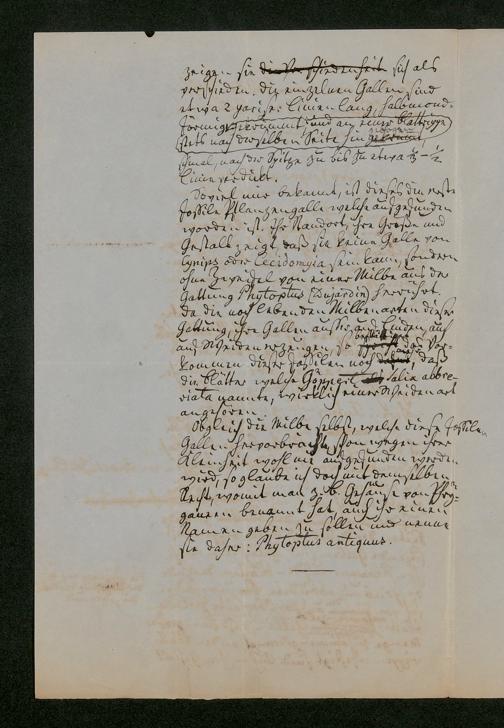 zeigen sie die Verschiedenheit sich als
verschieden. die einzelnen Gallen sind
etwa 2 pariser Linien lang, halbmond-
förmig gekrümmt und an einer Blattrippe
stets nach derselben Seite hin gekrümmt,
schmal, nach der Spitze zu bis zu etwa ½
Linie verdickt.
Soviel mir bekannt, ist dieses die erste
fossile Pflanzengalle welche aufgefunden
worden ist. Ihr Standort, ihre Größe und
Gestalt zeigt daß sie keine Galle von
Cynips oder Cecidomyia sein kann, sondern
ohne Zweifel von einer Milbe aus der
Gattung Phytoptus (Dujardin) herrührt,
da die noch lebenden Milbenarten dieser
Gattung, ihre Gallen auf Linden, auf
und Weiden erzeugen, so das Vor-
kommen dieser fossilen noch daß
die Blätter welche Göppert Salix abbre-
viata nannte, wirklich einer Weidenart
angehören.
Obgleich die Milbe selbst, welche diese fossilen
Gallen hervorbrachte, schon wegen ihrer
Kleinheit wohl nie aufgefunden werden
wird, so glaube ich doch mit demselben
Recht, womit man z. B. Gehäuse von Phry-
ganeen benannt hat, auch ihr einen
Namen geben zu sollen und nenne
sie daher: Phytoptus antiquus.